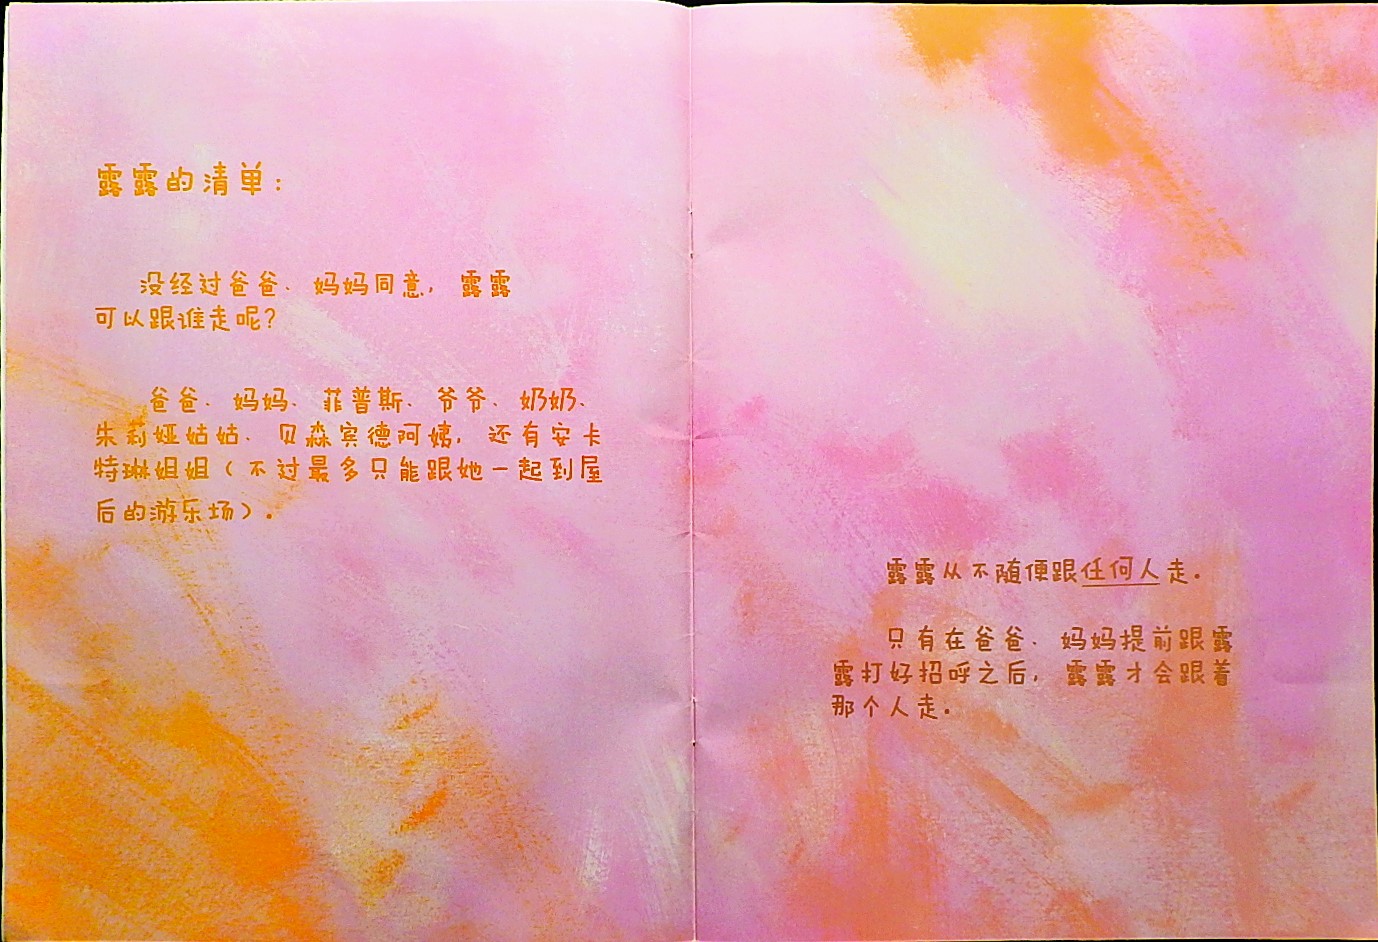 露露的清单：
没经过爸爸、妈妈同意，露露
可以跟谁走呢？
爸爸、妈妈、菲普斯、爷爷、奶奶、
朱莉娅姑姑、贝森宾德阿姨，还有安卡
特琳姐姐（不过最多只能跟她一起到屋
后的游乐场）。
露露从不随便跟任何人走。
只有在爸爸、妈妈提前跟露
露打好招呼之后，露露才会跟着
那个人走。